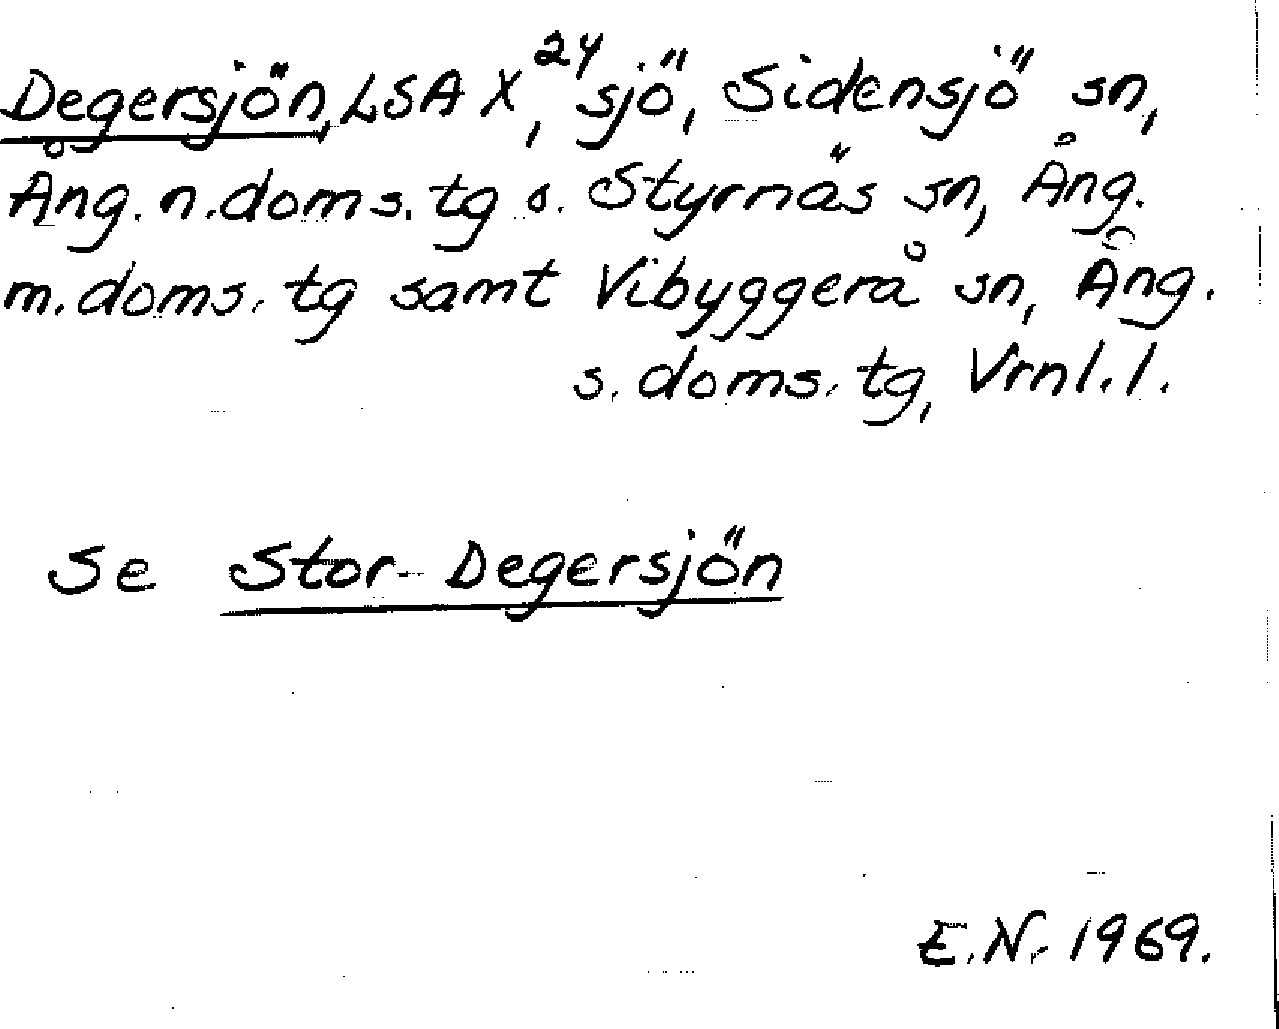 Degersjön, LSA X, 24 sjö, Sidensjö sn,
Ång. n. doms. tg o. Styrnäs sn, Ång.
m. doms. tg samt Vibyggerå sn, Ång.
s. doms. tg, Vrnl. l.
Se Stor-Degersjön
E.N. 1969.